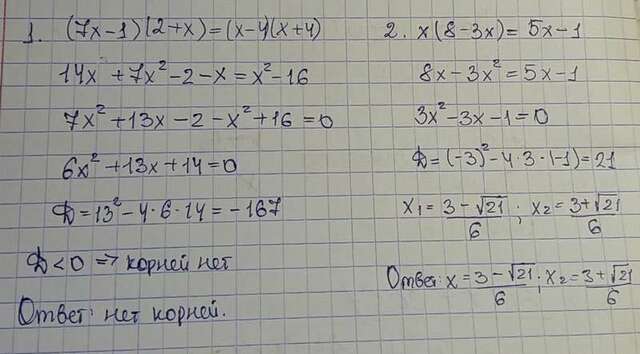 1. (7x-1)(2+x)=(x-4)(x+4)
14x+7x²-2-x=x²-16
7x²+13x-2-x²+16=0
6x²+13x+14=0
D=13²-4·6·14=-167
D<0 => корней нет
Ответ: нет корней.
2. x(8-3x)=5x-1
8x-3x²=5x-1
3x²-3x-1=0
D=(-3)²-4·3·(-1)=21
x₁=(3-√21)/6; x₂=(3+√21)/6
Ответ: x=(3-√21)/6; x₂=(3+√21)/6